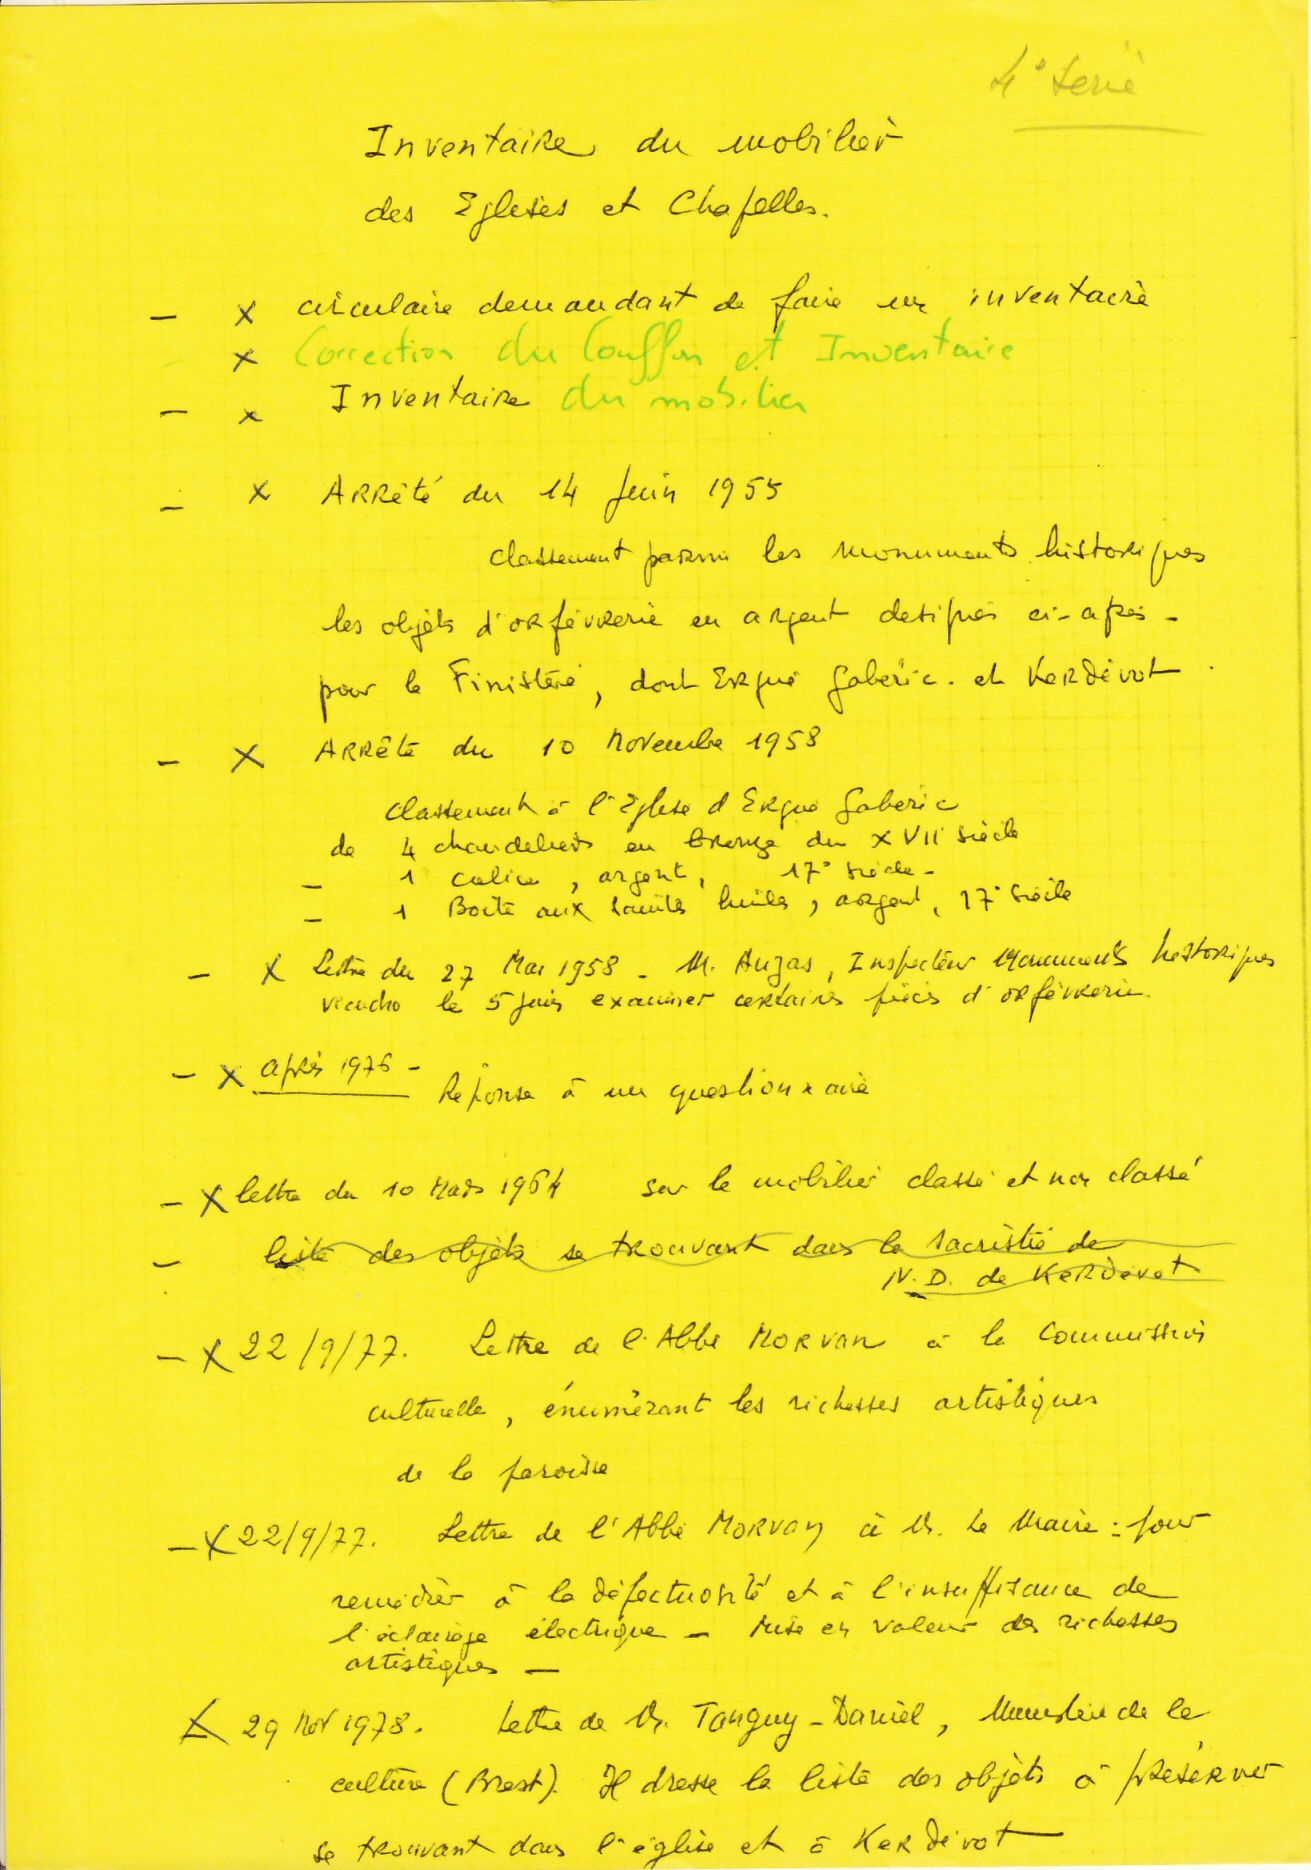 4° Serie
Inventaire du mobilier
des Eglises et Chapelles.
- x circulaire demandant de faire un inventaire
x Correction du Couffon et Inventaire
- x Inventaire du mobilier
- x Arrêté du 14 Juin 1955
classement parmi les monuments historiques
les objets d'orfévrerie en argent designés ci-après -
pour le Finistère, dont Ergué Gabéric. et Kerdévot
- x Arrêté du 10 Novembre 1958
classement à l'Eglise d'Ergué Gabéric
de 4 chandeliers en bronze du XVII siècle
- 1 calice, argent, 17° siècle -
- 1 Boîte aux saintes huiles, argent, 17° siècle
- x Lettre du 27 Mai 1958 - M. Auzas, Inspecteur Monuments historiques
viendra le 5 juin examiner certaines pièces d'orfévrerie.
- x après 1976 - Réponse à un questionnaire
- x lettre du 10 Mars 1964 sur le mobilier classé et non classé
- liste des objets se trouvant dans la sacristie de
N.D. de Kerdevot
- x 22/9/77. Lettre de l'Abbé MORVAN à la Commission
culturelle, énumérant les richesses artistiques
de la paroisse
- x 22/9/77. Lettre de l'Abbé MORVAN à M. Le Maire : pour
remédier à la défectuosité et à l'insuffisance de
l'éclairage électrique - Mise en valeur des richesses
artistiques -
x 29 Nov 1978. Lettre de M. Tanguy-Daniel, Ministère de la
culture (Brest). Il dresse la liste des objets à préserver
se trouvant dans l'église et à Kerdévot